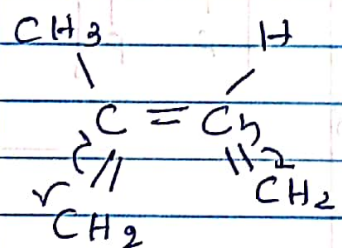 CH3 H
C = C
CH2 CH2